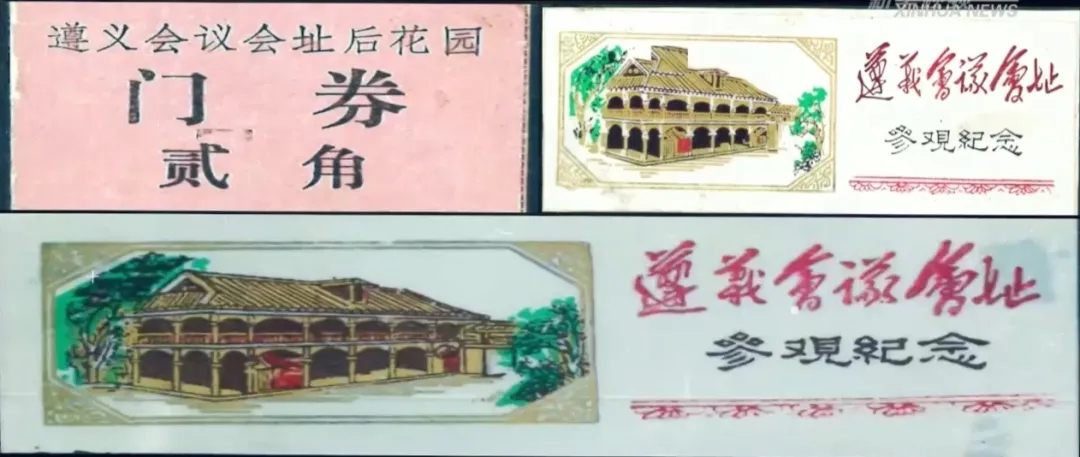 遵义会议会址后花园
门券
贰角
XINHUA NEWS
遵義會議會址
參观紀念
遵義會議會址
參观紀念